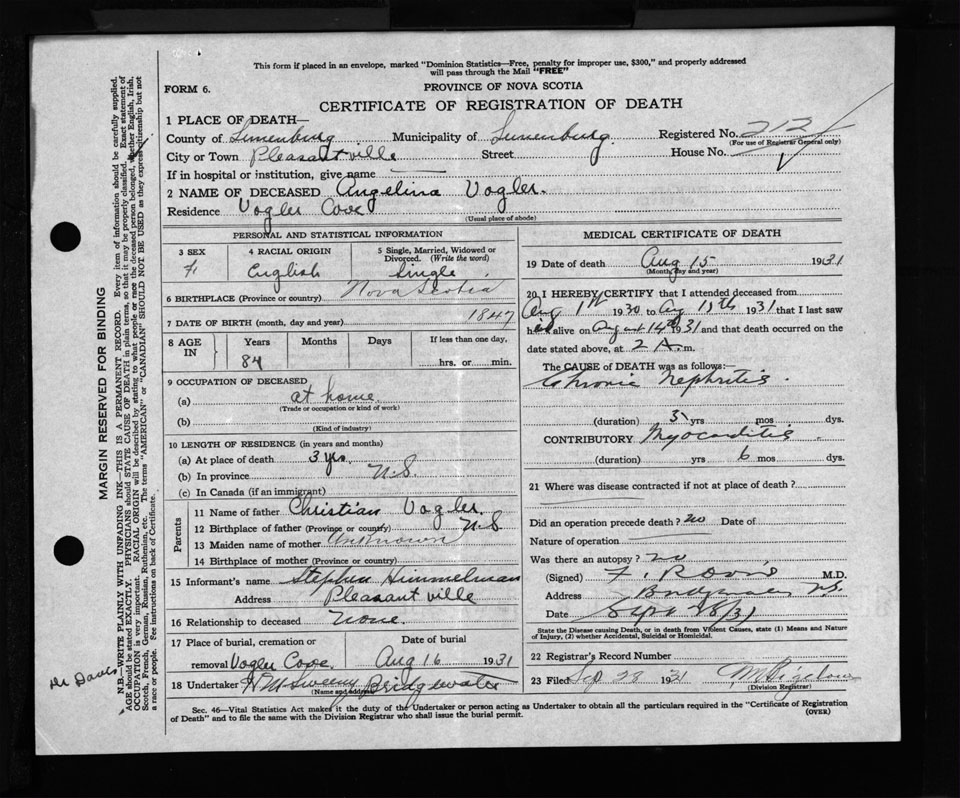 This form if placed in an envelope, marked "Dominion Statistics—Free, penalty for improper use, $300," and properly addressed
will pass through the Mail "FREE"
FORM 6.
PROVINCE OF NOVA SCOTIA
CERTIFICATE OF REGISTRATION OF DEATH
1 PLACE OF DEATH—
County of Lunenburg Municipality of Lunenburg Registered No. 212
(For use of Registrar General only)
City or Town Pleasantville Street House No.
If in hospital or institution, give name
2 NAME OF DECEASED Angelina Vogler.
Residence Vogler Cove
(Usual place of abode)
PERSONAL AND STATISTICAL INFORMATION
3 SEX 4 RACIAL ORIGIN 5 Single, Married, Widowed or
Divorced. (Write the word)
F. English Single
6 BIRTHPLACE (Province or country) Nova Scotia
7 DATE OF BIRTH (month, day and year) 1847
8 AGE IN Years Months Days If less than one day,
84 hrs. or min.
9 OCCUPATION OF DECEASED
(a) at home
(Trade or occupation or kind of work)
(b)
(Kind of industry)
10 LENGTH OF RESIDENCE (in years and months)
(a) At place of death 3 yrs.
(b) In province N.S
(c) In Canada (if an immigrant)
Parents
11 Name of father Christian Vogler.
12 Birthplace of father (Province or country) N.S
13 Maiden name of mother Unknown
14 Birthplace of mother (Province or country)
15 Informant's name Stephen Himmelman
Address Pleasantville
16 Relationship to deceased None.
17 Place of burial, cremation or Date of burial
removal Vogler Cove. Aug 16 1931
18 Undertaker Sweeny Bridgewater
(Name and address)
MEDICAL CERTIFICATE OF DEATH
19 Date of death Aug 15 1931
(Month, day and year)
20 I HEREBY CERTIFY that I attended deceased from
Aug 1st 1930 to Aug 15th 1931 that I last saw
h alive on August 14th 1931 and that death occurred on the
date stated above, at 2 A.m.
The CAUSE of DEATH was as follows:—
Chronic Nephritis.
(duration) 3 yrs mos dys.
CONTRIBUTORY Myocarditis
(duration) yrs 6 mos dys.
21 Where was disease contracted if not at place of death?
Did an operation precede death? no Date of
Nature of operation
Was there an autopsy? no
(Signed) F. Davis M.D.
Address Bridgewater N.S.
Date Sept 28/31
State the Disease causing Death, or in death from Violent Causes, state (1) Means and Nature
of Injury, (2) whether Accidental, Suicidal or Homicidal.
22 Registrar's Record Number
23 Filed Sep 28 1931
(Division Registrar)
Sec. 46—Vital Statistics Act makes it the duty of the Undertaker or person acting as Undertaker to obtain all the particulars required in the "Certificate of Registration
of Death" and to file the same with the Division Registrar who shall issue the burial permit.
(OVER)
MARGIN RESERVED FOR BINDING
N.B.—WRITE PLAINLY WITH UNFADING INK—THIS IS A PERMANENT RECORD. Every item of information should be carefully supplied.
AGE should be stated EXACTLY. PHYSICIANS should STATE CAUSE OF DEATH in plain terms, so that it may be properly classified. Exact statement of
OCCUPATION is very important. RACIAL ORIGIN will be described by stating to what people or race the deceased person belonged, whether English, Irish,
Scotch, French, German, Russian, Ruthenian, etc. The terms "AMERICAN" or "CANADIAN" SHOULD NOT BE USED as they express citizenship but not
a race or people. See instructions on back of Certificate.
Dr Davis